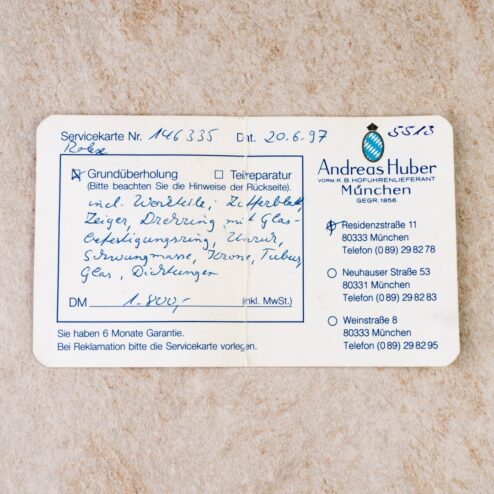 Servicekarte Nr. 146335 Dat. 20.6.97
Rolex
Grundüberholung Teilreparatur
(Bitte beachten Sie die Hinweise der Rückseite).
incl. Werkteile, Zifferblatt,
Zeiger, Drehring mit Glas-
befestigungsring, Unruh,
Schwungmasse, Krone, Tubus,
Glas, Dichtungen
DM 1.800,- (inkl. MwSt.)
Sie haben 6 Monate Garantie.
Bei Reklamation bitte die Servicekarte vorlegen.
5513
Andreas Huber
VORM. K. B. HOFUHRENLIEFERANT
München
GEGR. 1856
Residenzstraße 11
80333 München
Telefon (0 89) 29 82 78
Neuhauser Straße 53
80331 München
Telefon (0 89) 29 82 83
Weinstraße 8
80333 München
Telefon (0 89) 29 82 95